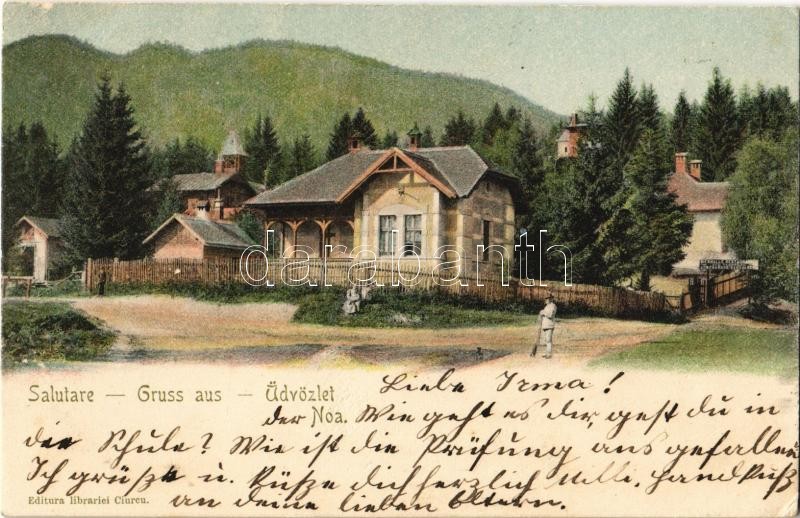 darabanth
Salutare — Gruss aus — Üdvözlet
Noa.
Liebe Irma!
der Wie geht es dir, gest du in
die Schule? Wie ist die Prüfung ausgefallen
Ich grüße u. küße dich herzlich Milli. Handkuß
an deine lieben Eltern.
Editura librariei Ciurcu.